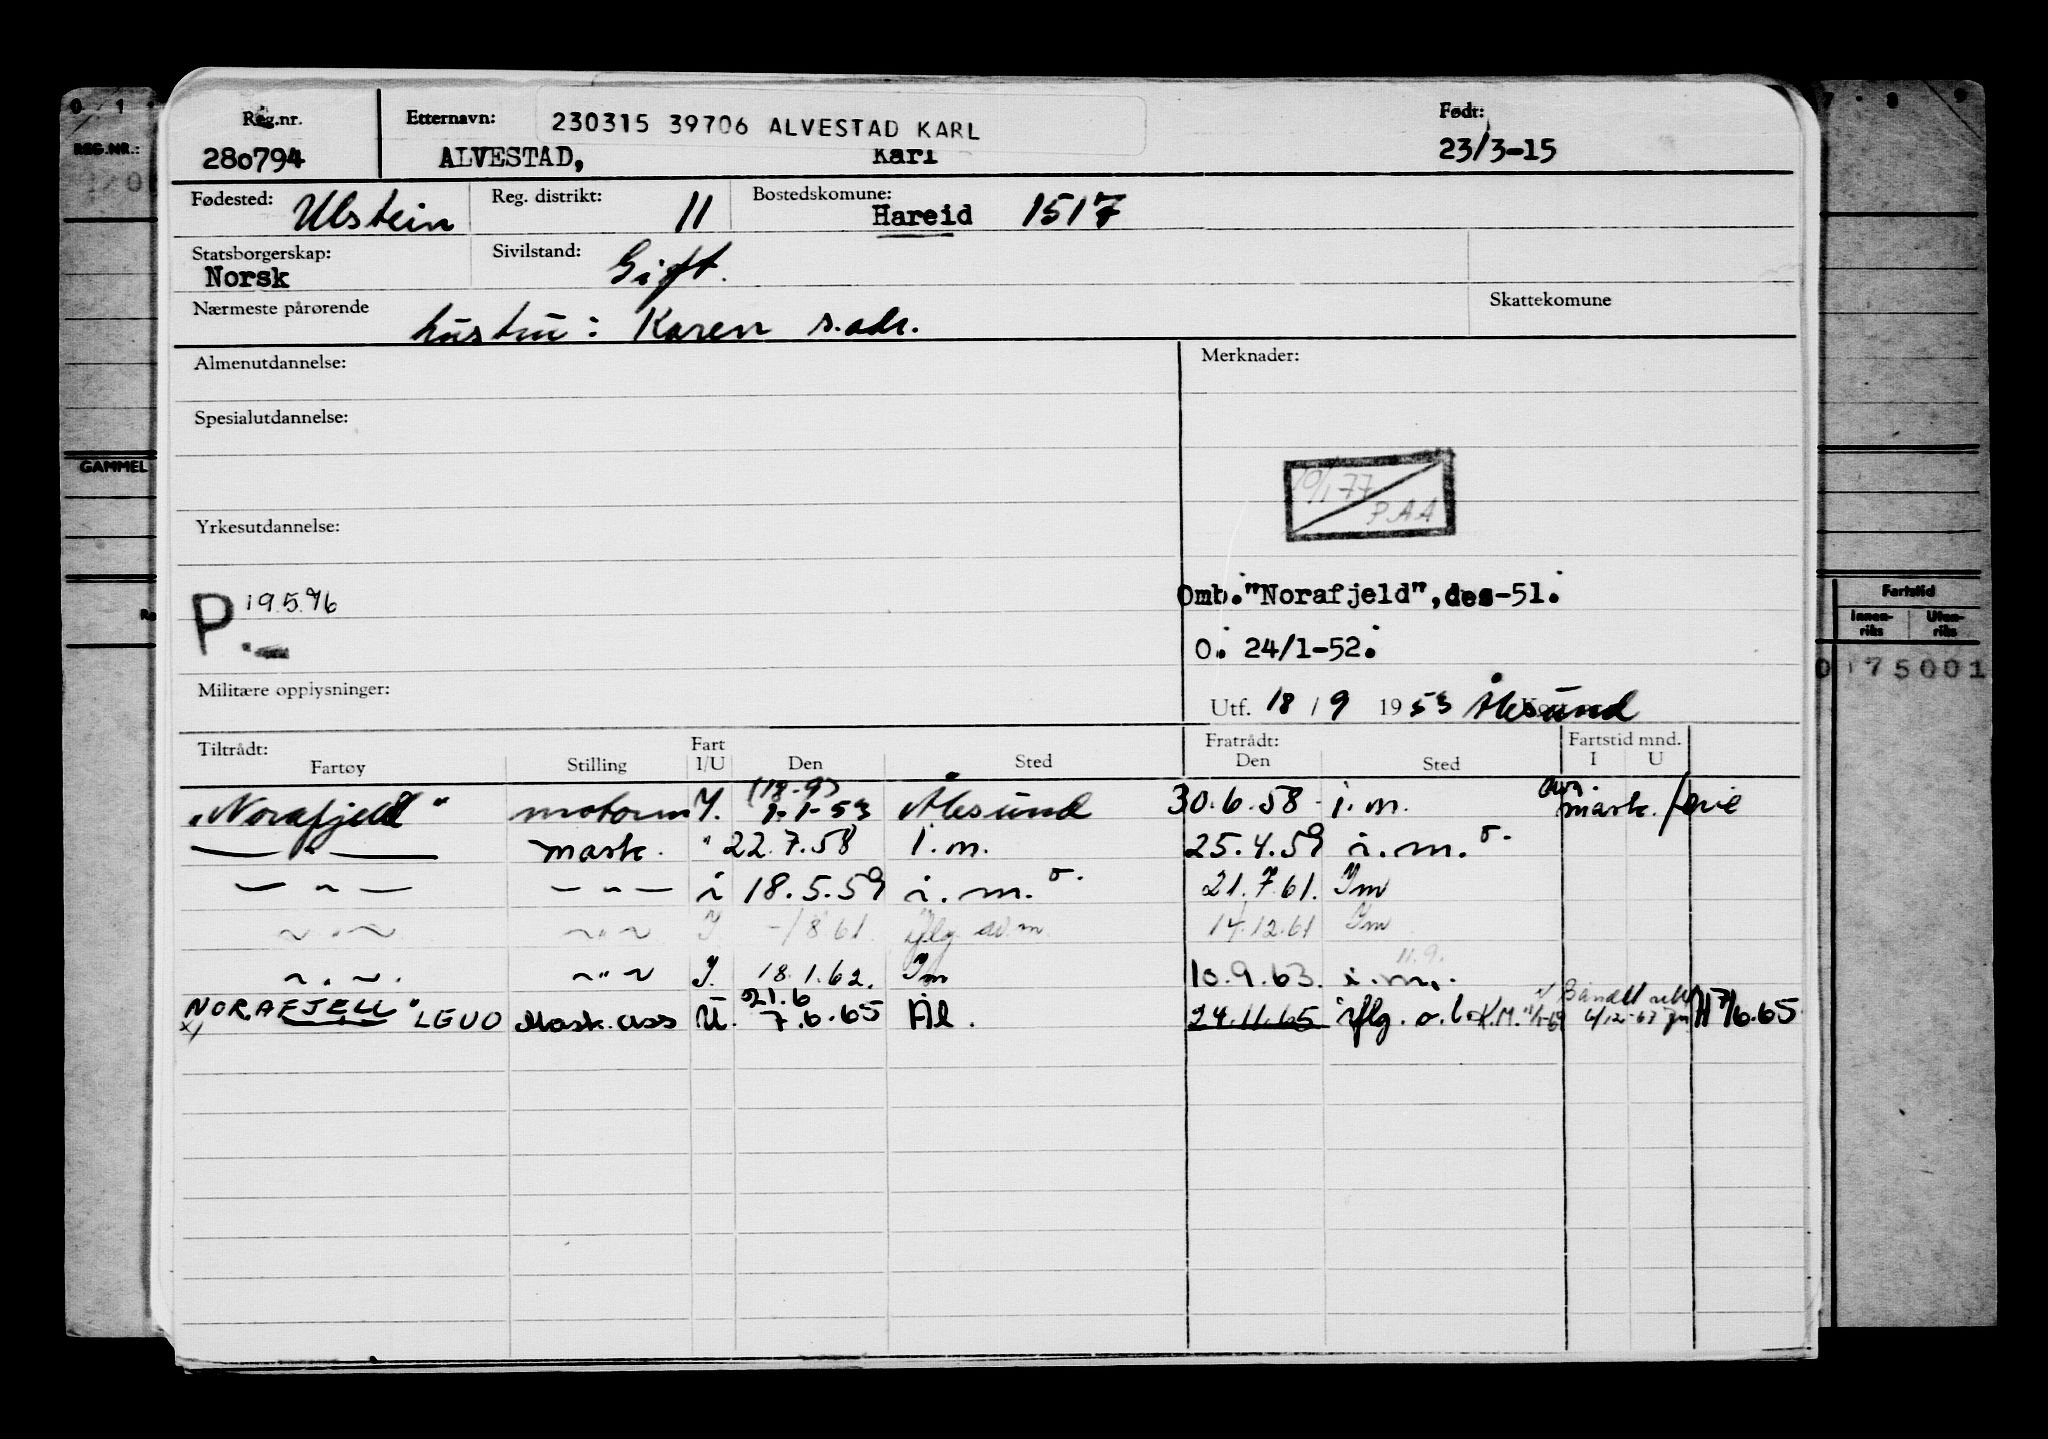 Reg.nr. Etternavn: 230315 39706 ALVESTAD KARL Født:
280794 ALVESTAD, Karl 23/3-15
Fødested: Ulstein Reg. distrikt: 11 Bostedskomune: Hareid 1517
Statsborgerskap: Norsk Sivilstand: Gift.
Nærmeste pårørende hustru: Karen s.adr. Skattekomune
Almenutdannelse: Merknader:
Spesialutdannelse:
10/1 77 PAA
Yrkesutdannelse:
P 19.5.76
Omb. "Norafjeld", des-51.
O. 24/1-52.
Militære opplysninger:
Utf. 18/9 1953 Ålesund
Tiltrådt: Fart Fratrådt: Fartstid mnd.
Fartøy Stilling I/U Den Sted Den Sted I U
"Norafjeld" motorm I. (18-9) 1-1-53 Ålesund 30.6.58 i.m. avm. mask. ferie
— " — mask. " 22.7.58 i.m. 25.4.59 i.m.
— " — — " — i 18.5.59 i.m. 21.7.61. Im
~ " ~ ~ " ~ I. -/8 61 iflg m 14.12.61 Im
11.9.
~ " ~ ~ " ~ I. 18.1.62. Im 10.9.63. i.m.
NORAFJELL" LEVO Mask.ass U. 21.6 7.6.65 Ål. 24.11.65 iflg. o.l. K.M. 7/6.65
x/
REG.NR.:
GAMMEL
Fartstid
Innen-riks Uten-riks
75001